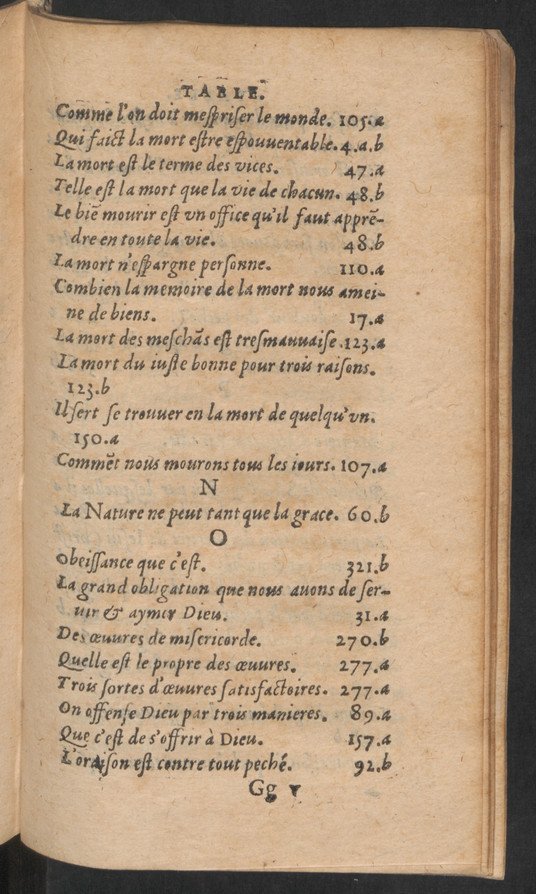 TABLE.
Comme l'on doit mespriser le monde. 105.a
Qui faict la mort estre espouuentable. 4.a.b
La mort est le terme des vices. 47.a
Telle est la mort que la vie de chacun. 48.b
Le biē mourir est vn office qu'il faut apprē-
dre en toute la vie. 48.b
La mort n'espargne personne. 110.a
Combien la memoire de la mort nous amei-
ne de biens. 17.a
La mort des meschās est tresmauuaise. 123.a
La mort du iuste bonne pour trois raisons.
123.b
Il sert se trouuer en la mort de quelqu'vn.
150.a
Commēt nous mourons tous les iours. 107.a
N
La Nature ne peut tant que la grace. 60.b
O
Obeissance que c'est. 321.b
La grand obligation que nous auons de ser-
uir & aymer Dieu. 31.a
Des œuures de misericorde. 270.b
Quelle est le propre des œuures. 277.a
Trois sortes d'œuures satisfactoires. 277.a
On offense Dieu par trois manieres. 89.a
Que c'est de s'offrir à Dieu. 157.a
L'oraison est contre tout peché. 92.b
Gg v